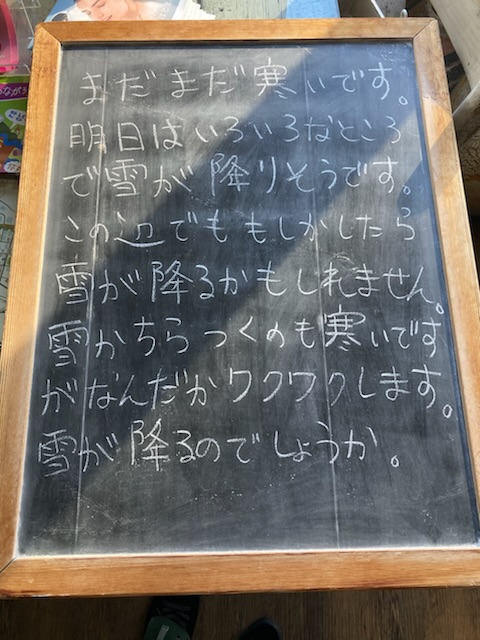 まだまだ寒いです。
明日はいろいろなところ
で雪が降りそうです。
この辺でももしかしたら
雪が降るかもしれません。
雪がちらつくのも寒いです
がなんだかワクワクします。
雪が降るのでしょうか。